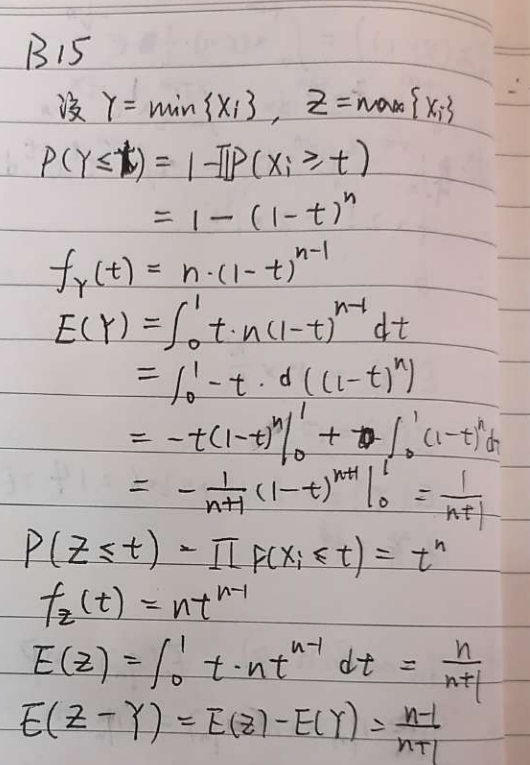 B15
设 Y = min{Xi}, Z = max{Xi}
P(Y≤t) = 1 - ∏P(Xi ≥ t)
= 1 - (1-t)^n
f_Y(t) = n·(1-t)^{n-1}
E(Y) = ∫₀¹ t·n(1-t)^{n-1} dt
= ∫₀¹ -t · d((1-t)^n)
= -t(1-t)^n |₀¹ + ∫₀¹ (1-t)^n dt
= - 1/(n+1) (1-t)^{n+1} |₀¹ = 1/(n+1)
P(Z≤t) = ∏ P(Xi ≤ t) = t^n
f_Z(t) = nt^{n-1}
E(Z) = ∫₀¹ t·nt^{n-1} dt = n/(n+1)
E(Z-Y) = E(Z) - E(Y) = (n-1)/(n+1)